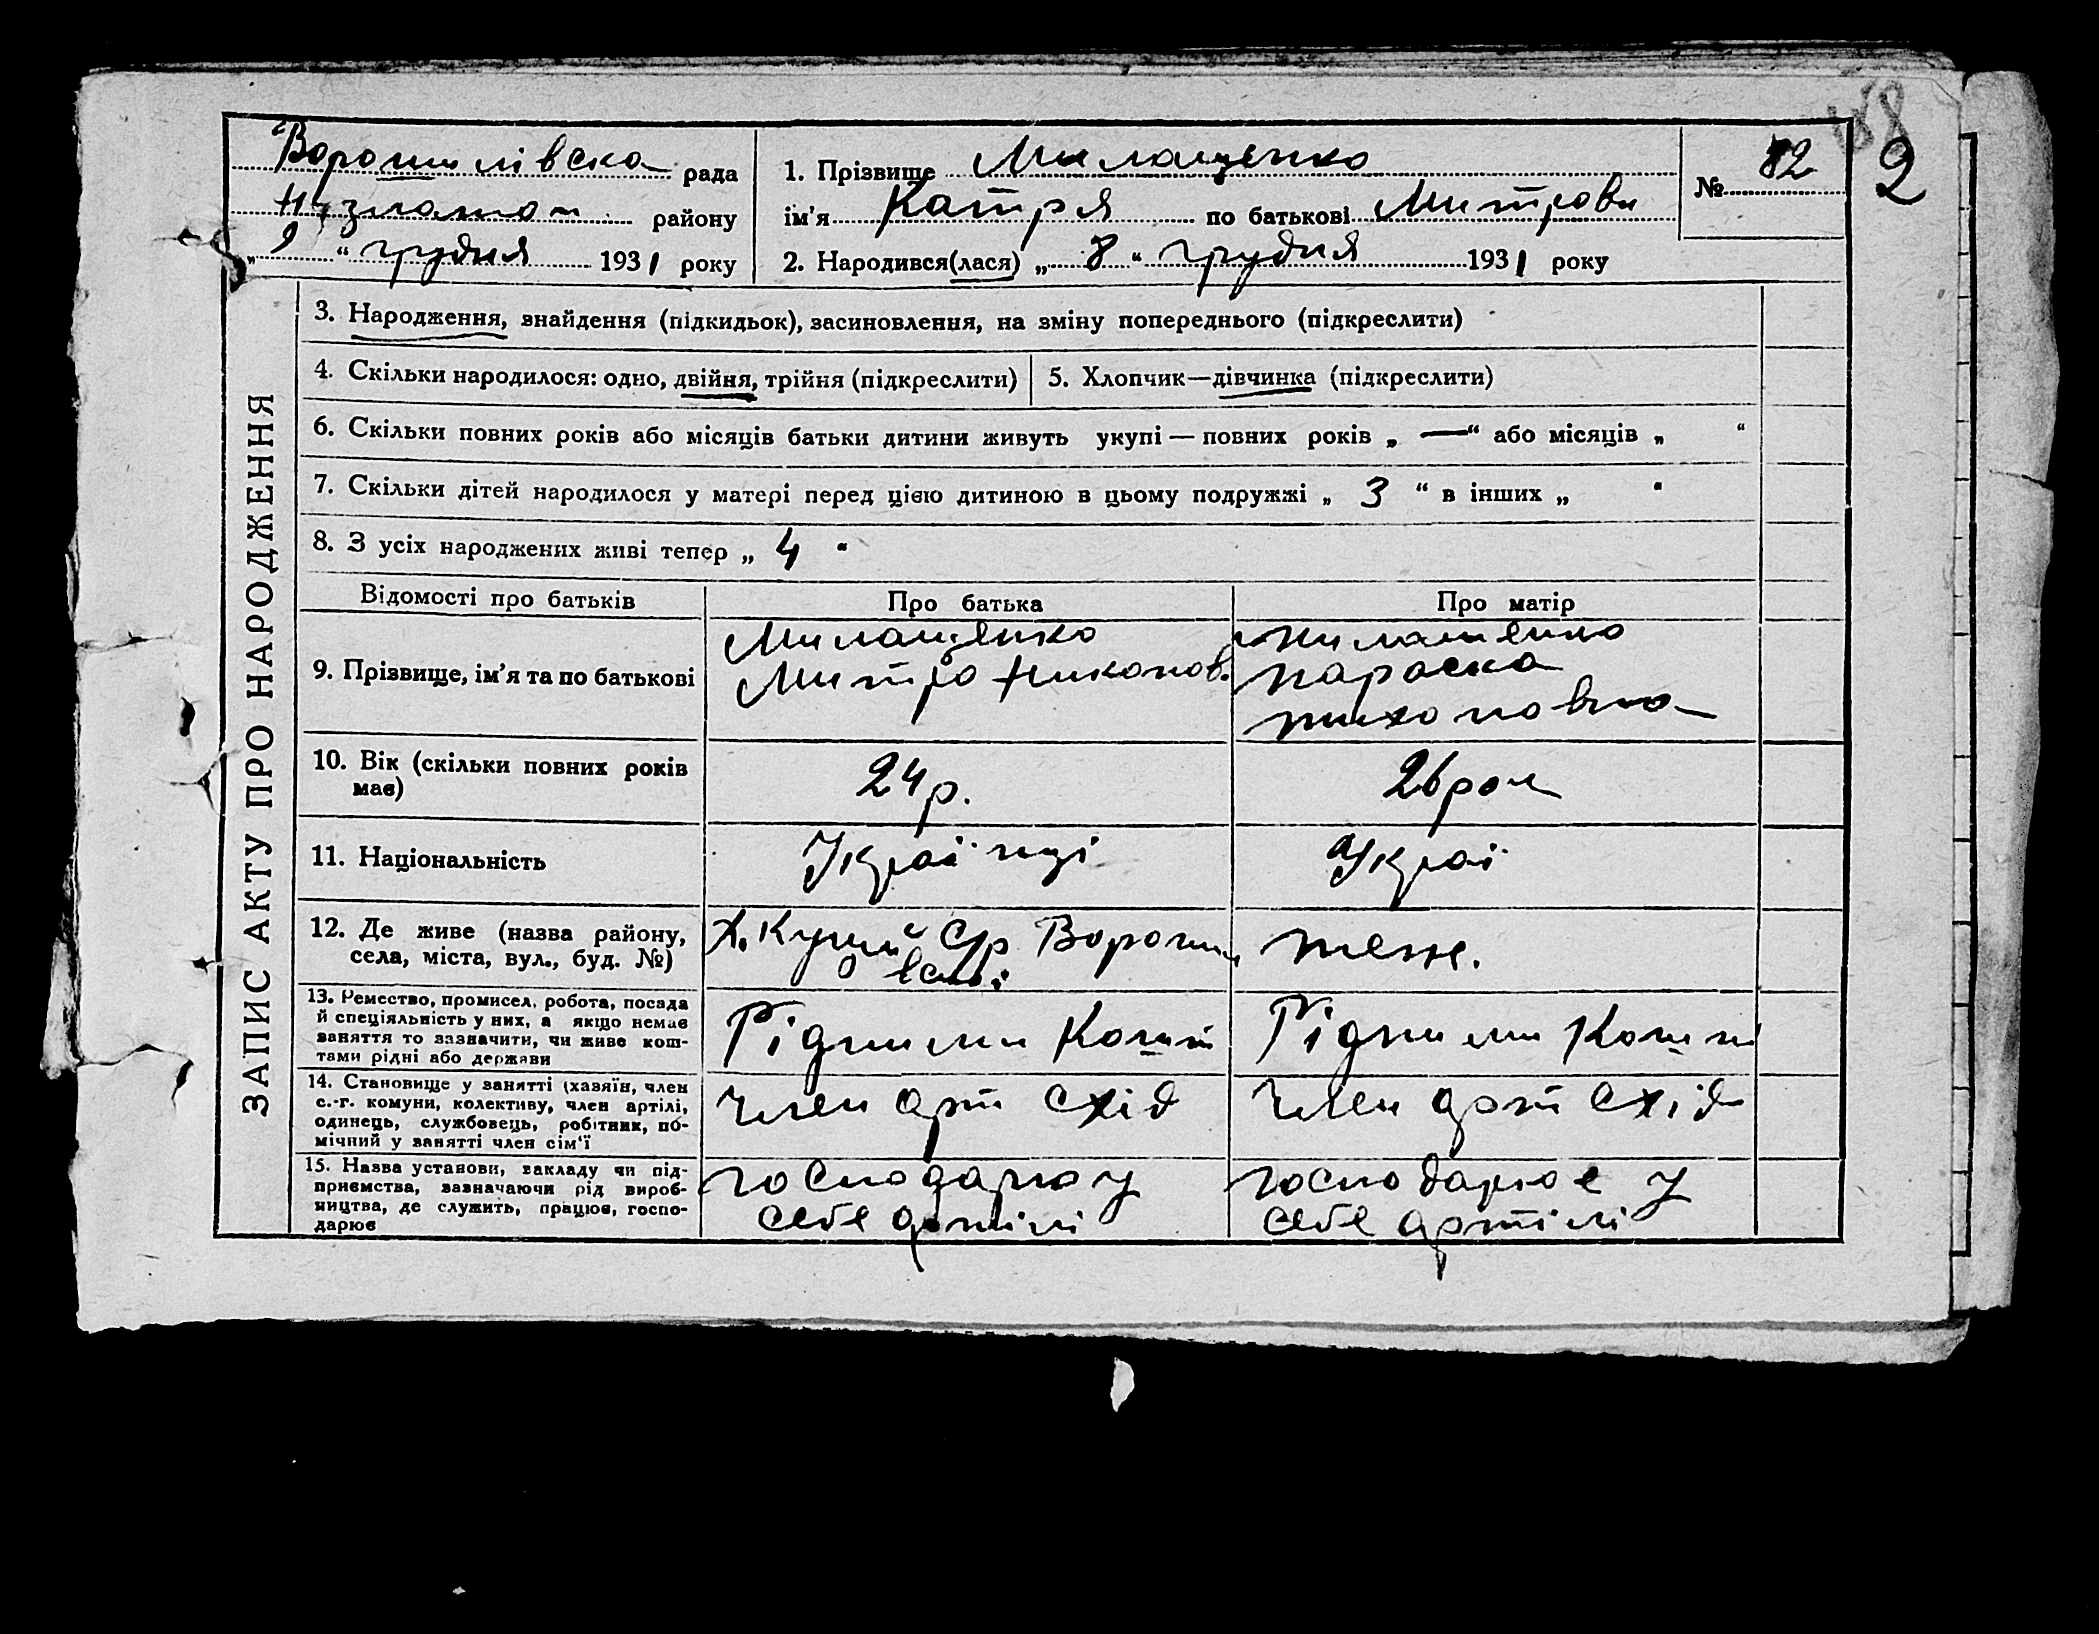 188
2
Ворошилівська рада
району
„ 9 “ грудня 1931 року
1. Прізвище Милащенко
ім'я Катря по батькові Митрови
2. Народився(лася) „ 8 “ грудня 1931 року
№ 82
ЗАПИС АКТУ ПРО НАРОДЖЕННЯ
3. Народження, знайдення (підкидьок), засиновлення, на зміну попереднього (підкреслити)
4. Скільки народилося: одно, двійня, трійня (підкреслити)
5. Хлопчик—дівчинка (підкреслити)
6. Скільки повних років або місяців батьки дитини живуть укупі — повних років „ — “ або місяців „ “
7. Скільки дітей народилося у матері перед цією дитиною в цьому подружжі „ 3 “ в інших „ “
8. З усіх народжених живі тепер „ 4 “
Відомості про батьків
Про батька
Про матір
9. Прізвище, ім'я та по батькові
Милащенко
Митро Никонов.
Милащенко
Параска
Тихоновна
10. Вік (скільки повних років
має)
24 р.
26 рок
11. Національність
Українці
Украї
12. Де живе (назва району,
села, міста, вул., буд. №)
Х. С/р Вороши
теж.
13. Ремество, промисел, робота, посада
й спеціяльність у них, а якщо немає
заняття то зазначити, чи живе кош-
тами рідні або держави
Рідними Кошт
Рідними Кошти
14. Становище у занятті (хазяїн, член
с.-г. комуни, колективу, член артілі,
одинець, службовець, робітник, по-
мічний у занятті член сім'ї
член арт схід
член арт схід
15. Назва установи, закладу чи під-
приємства, зазначаючи рід вироб-
ництва, де служить, працює, госпо-
дарює
господарює у
себе артілі
господарює у
себе артілі